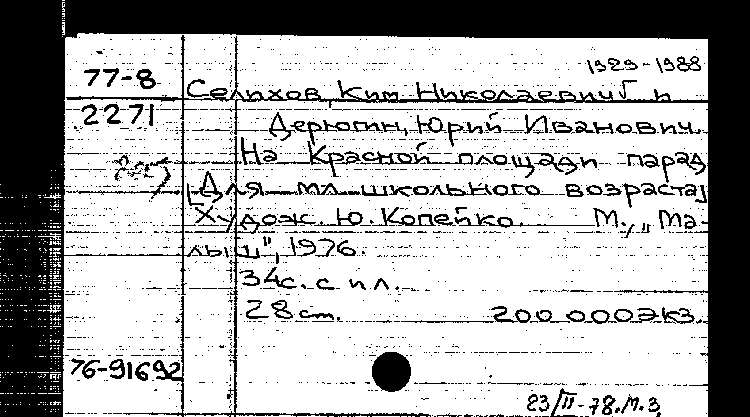 1929-1988
77-8
Селихов, Ким Николаевич и
2271
Дерюгин, Юрий Иванович.
На Красной площади парад
[Для мл. школьного возраста]
Худож. Ю. Копейко. М., "Ма-
лыш", 1976.
34с. с ил.
28 см. 200 000экз.
76-91692
23/II-78.М.З.